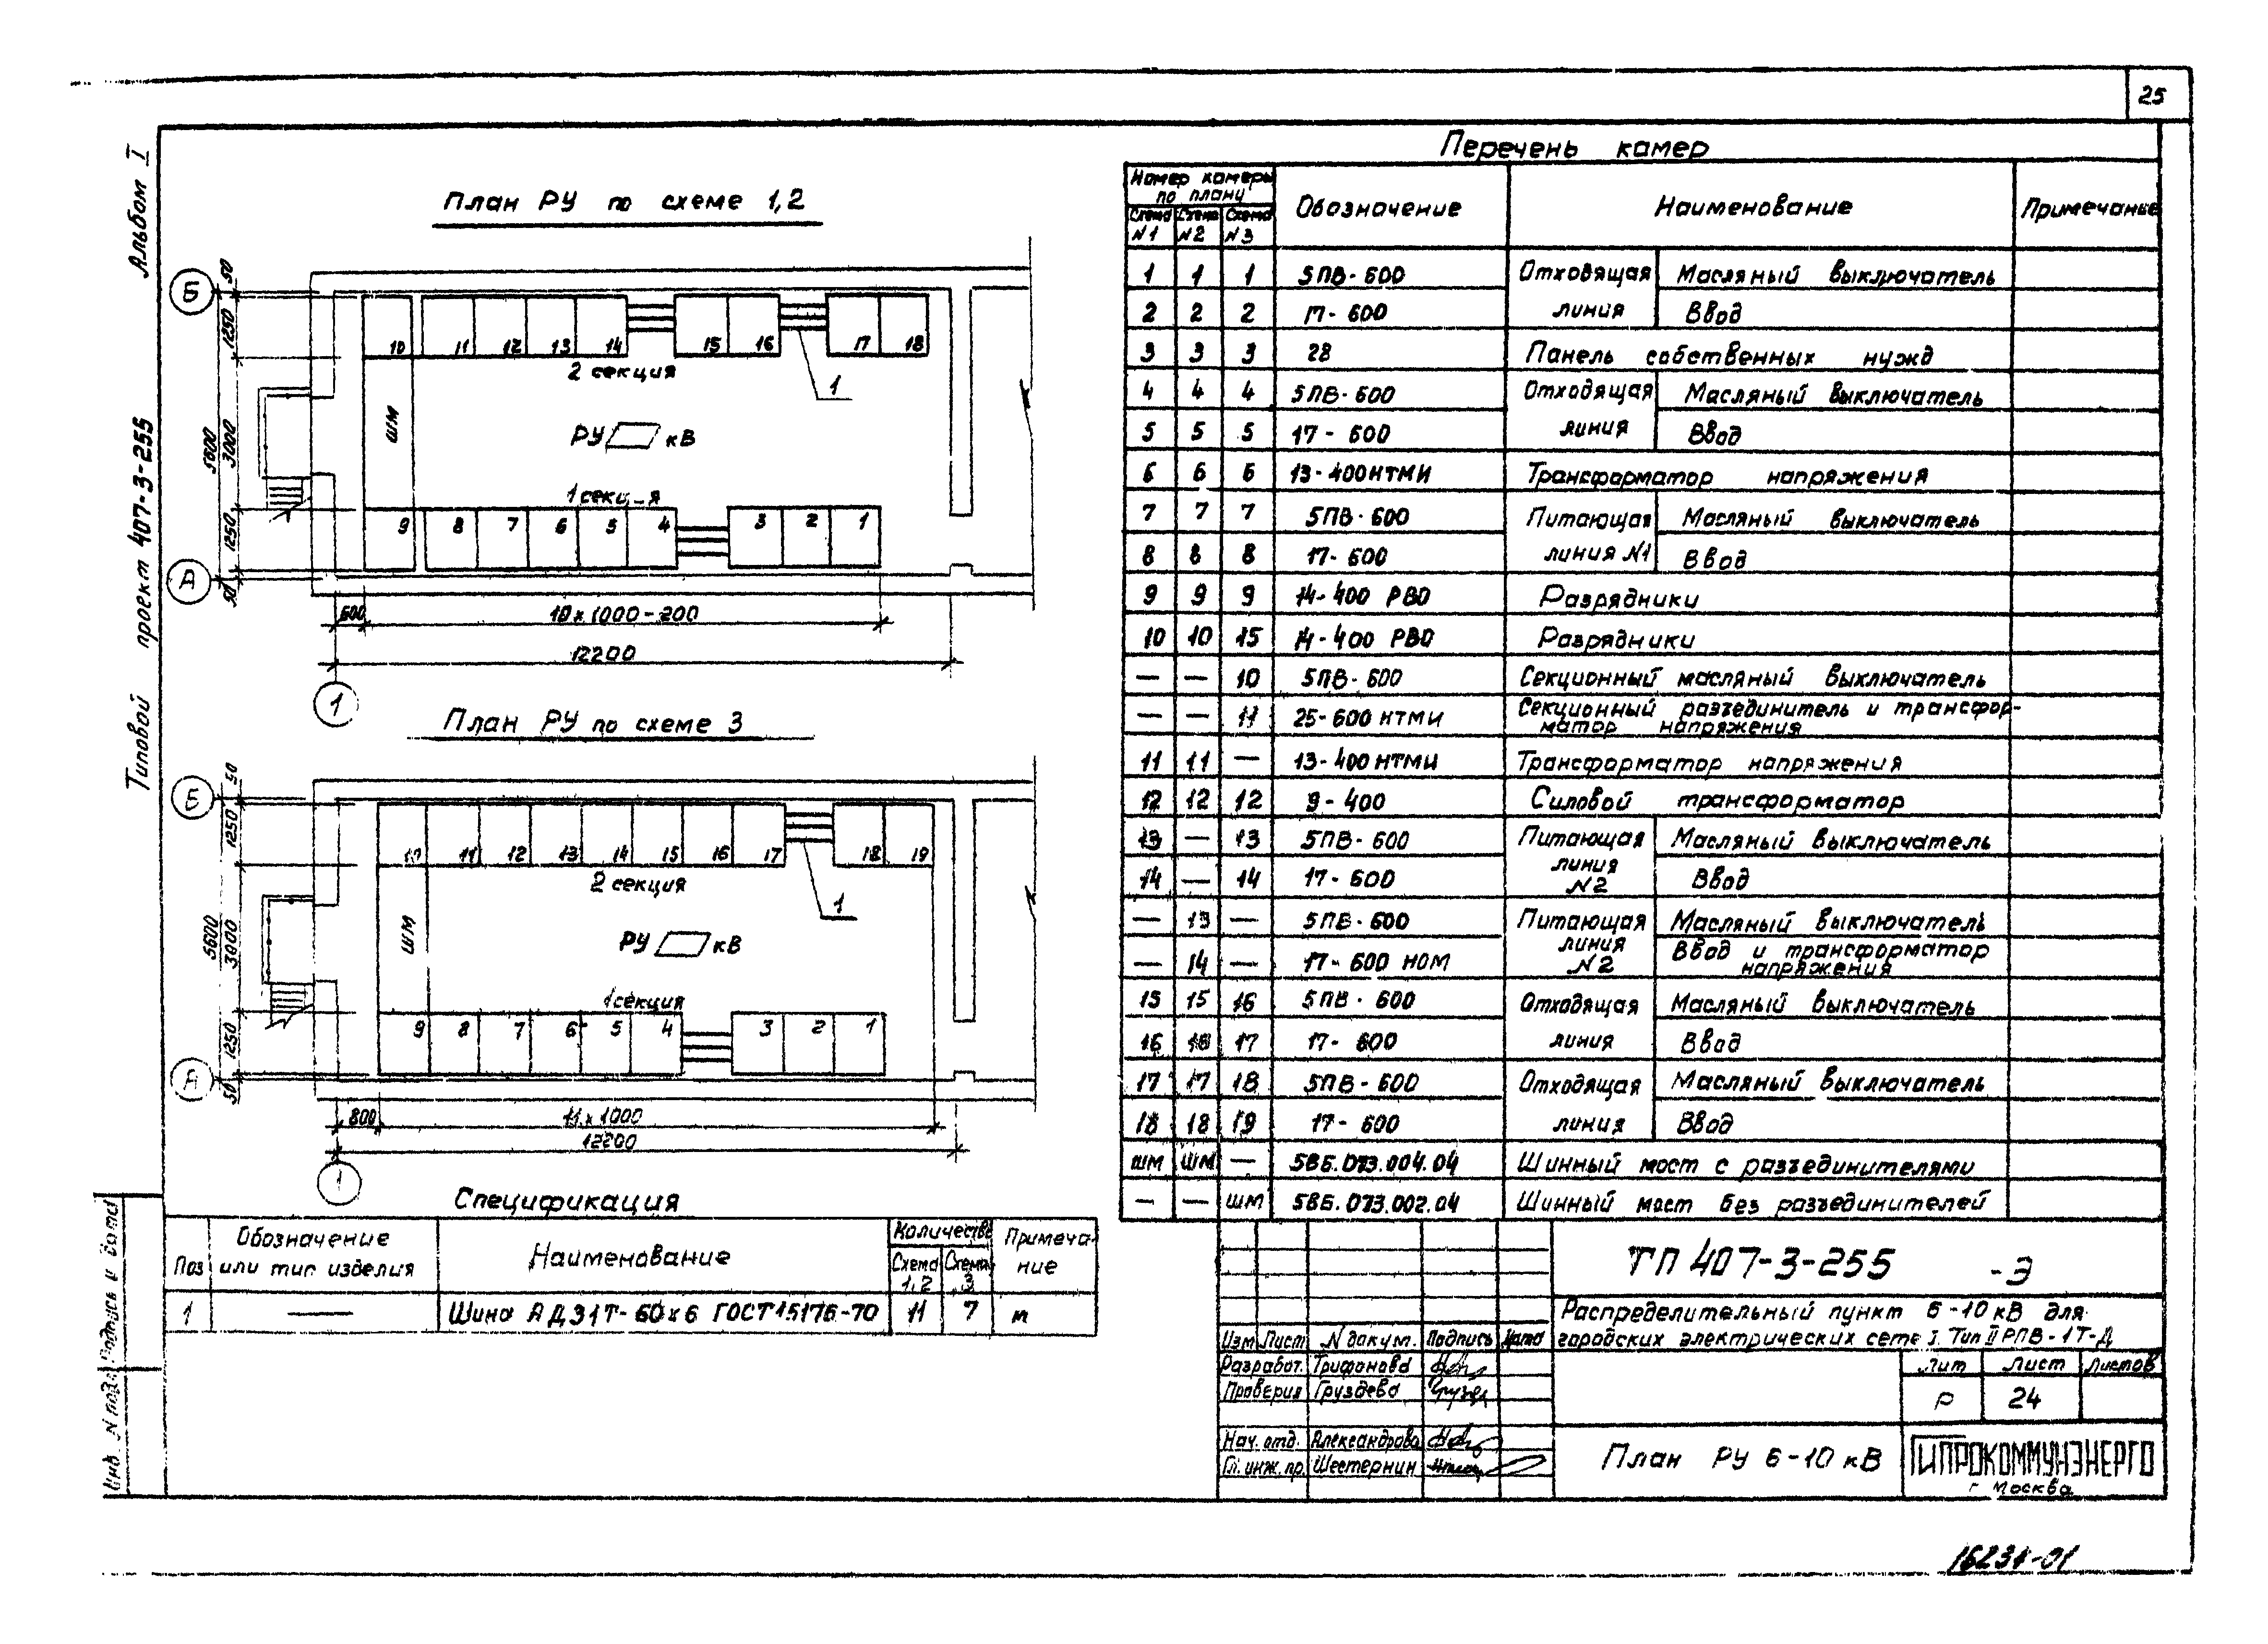 25
Альбом I
Типовой проект 407-3-255
План РУ по схеме 1,2
Б
А
50
1250
3000
5600
1250
50
10 11 12 13 14 15 16 17 18
2 секция
1
ШМ
РУ кВ
1 секция
9 8 7 6 5 4 3 2 1
600
10х1000-200
12200
1
План РУ по схеме 3
Б
А
50
1250
3000
5600
1250
50
10 11 12 13 14 15 16 17 18 19
2 секция
1
ШМ
РУ кВ
1 секция
9 8 7 6 5 4 3 2 1
800
11х1000
12200
1
Спецификация
Поз Обозначение или тип изделия Наименование Количество Примечание
Схема 1,2 Схема 3
1 — Шина АД31Т-60х6 ГОСТ 15176-70 11 7 м
Перечень камер
Номер камеры по плану Обозначение Наименование Примечание
Схема N1 Схема N2 Схема N3
1 1 1 5ПВ-600 Отходящая линия Масляный выключатель
2 2 2 17-600 Ввод
3 3 3 28 Панель собственных нужд
4 4 4 5ПВ-600 Отходящая линия Масляный выключатель
5 5 5 17-600 Ввод
6 6 6 13-400НТМИ Трансформатор напряжения
7 7 7 5ПВ-600 Питающая линия N1 Масляный выключатель
8 8 8 17-600 Ввод
9 9 9 14-400 РВО Разрядники
10 10 15 14-400 РВО Разрядники
— — 10 5ПВ-600 Секционный масляный выключатель
— — 11 25-600 НТМИ Секционный разъединитель и трансфор-
матор напряжения
11 11 — 13-400 НТМИ Трансформатор напряжения
12 12 12 9-400 Силовой трансформатор
13 — 13 5ПВ-600 Питающая линия N2 Масляный выключатель
14 — 14 17-600 Ввод
— 13 — 5ПВ-600 Питающая линия N2 Масляный выключатель
— 14 — 17-600 НОМ Ввод и трансформатор напряжения
15 15 16 5ПВ-600 Отходящая линия Масляный выключатель
16 16 17 17-600 Ввод
17 17 18 5ПВ-600 Отходящая линия Масляный выключатель
18 18 19 17-600 Ввод
ШМ ШМ — 5ВБ.073.004.04 Шинный мост с разъединителями
— — ШМ 5ВБ.073.002.04 Шинный мост без разъединителей
ТП 407-3-255 -Э
Распределительный пункт 6-10 кВ для
городских электрических сетей. Тип II РПВ-1Т-Д
Изм Лист N докум. Подпись Дата
Разработ. Трифонова
Проверил Груздева
Нач. отд. Александрова
Гл. инж. пр. Шестернин
Лит Лист Листов
Р 24
План РУ 6-10 кВ
ГИПРОКОММУНЭНЕРГО
г Москва
Инв. N подл. Подпись и дата
16234-01